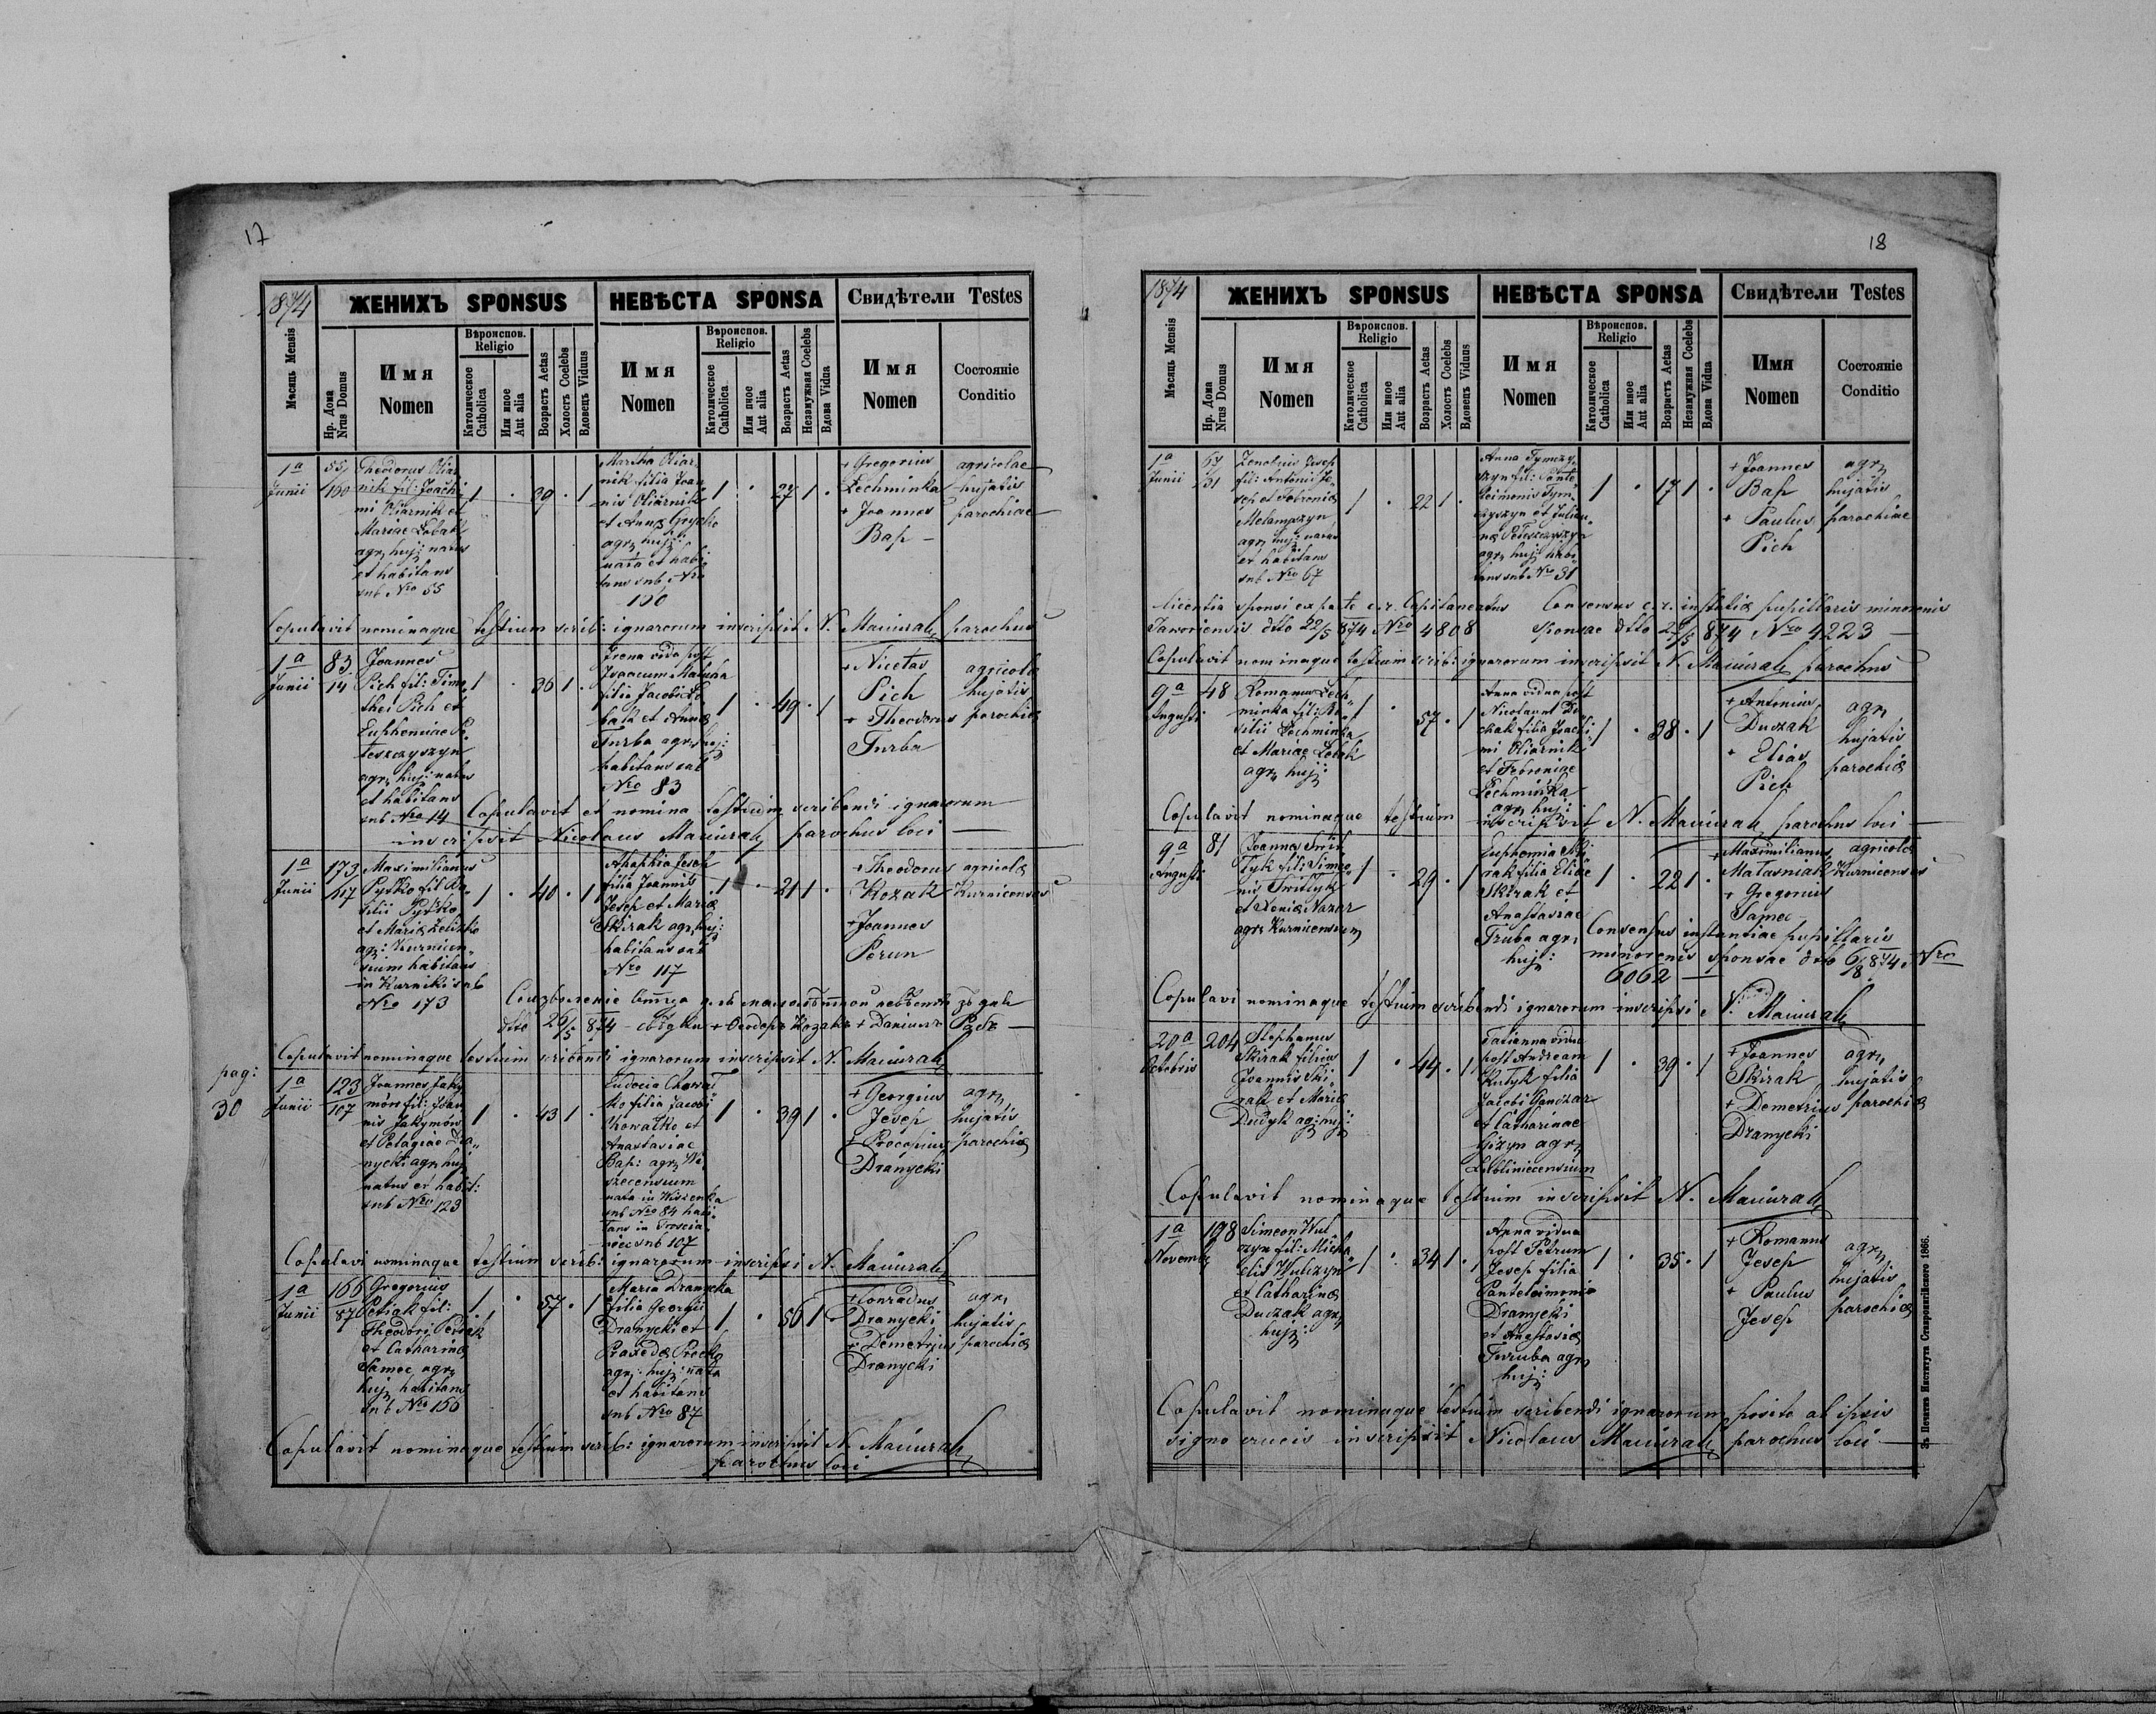 17
1874
ЖЕНИХЪ SPONSUS
НЕВѢСТА SPONSA
Свидѣтели Testes
Мѣсяць Mensis
Нр. Дома
Nrus Domus
Имя
Nomen
Вѣроиспов.
Religio
Католическое
Catholica
Или иное
Aut alia
Возрастъ Aetas
Холостъ Coelebs
Вдовецъ Viduus
Имя
Nomen
Вѣроиспов.
Religio
Католическое
Catholica
Или иное
Aut alia
Возрастъ Aetas
Незамужная Coelebs
Вдова Vidua
Имя
Nomen
Состояніе
Conditio
1a
Junii
55/
160
Theodorus Oliar
nik fil: Joachi
mi Oliarnik et
Mariae Lobak
agr. huj: natus
et habitans
sub Nro 55
1 . 39 . 1
Martha Oliar
nik filia Joan
nis Oliarnik
et Anna
agr. huj:
nata et habi
tans sub Nro
160
1 . 27 1 .
+ Gregorius
Lechminka
+ Joannes
Bap
agricolae
hujatis
parochiae
Copulavit nominaque testium scrib: ignarorum inscripsit N. parochus
1a
Junii
83
14
Joannes
Pich fil: Timo
thei Pich et
Eupheniae Pe
teszczyszyn
agr. huj: natus
et habitans
sub Nro 14
1 . 36 1 .
Irena vidua post
Isaacum
filia Jacobi Lo
bak et Anna
Turba agr. huj:
habitans sub
Nro 83
1 . 49 . 1
+ Nicetas
Pich
+ Theodorus
Turba
agricolae
hujatis
parochiae
Copulavit et nomina testium scribendi ignarorum
inscripsit Nicolaus parochus loci
1a
Junii
173
117
Maximilianus
Pytko fil Ba
silii Pytko
et Maria
agr: Kurnicen
sium habitans
in Kurniki sub
Nro 173
1 . 40 . 1
Aphaphia Jesep
filia Joannis
Jesep et Maria
Skirak agr. huj:
habitans sub
Nro 117
1 . 21 1 .
+ Theodorus
Kozak
+ Joannes
Perun
agricolae
Kurnicenses
dtto 26/5 874
Copulavit nominaque testium scribendi ignarorum inscripsit N.
pag:
30
1a
Junii
123
107
Joannes Jaky
mów fil: Joan
nis Jakymów
et Pelagiae Dra
nycki agr. huj
natus et habit:
sub Nro 123
1 . 43 1 .
Eudocia Chowat
ko filia Jacobi
Chowatko et
Anastasiae
Bap: agr. Wi
szecensium
nata in Wiszenka
sub Nro 84 habi
tans in
sub 107
1 . 39 1 .
+ Georgius
Jesep
+ Procopius
Dranycki
agr.
hujatis
parochiae
Copulavi nominaque testium scrib: ignarorum inscripsi N.
1a
Junii
166
87
Gregorius
Petrak fil:
Theodori Petrak
et Catharina
Samec agr.
huj. habitans
sub Nro 156
1 . 57 . 1
Maria Dranycka
filia Georgii
Dranycki et
Praxeda
agr: huj: nata
et habitans
sub Nro 87
1 . 56 1 .
+ Conradus
Dranycki
+ Demetrius
Dranycki
agr.
hujatis
parochiae
Copulavit nominaque testium scrib: ignarorum inscripsit N.
parochus loci
18
1874
ЖЕНИХЪ SPONSUS
НЕВѢСТА SPONSA
Свидѣтели Testes
Мѣсяць Mensis
Нр. Дома
Nrus Domus
Имя
Nomen
Вѣроиспов.
Religio
Католическое
Catholica
Или иное
Aut alia
Возрастъ Aetas
Холостъ Coelebs
Вдовецъ Viduus
Имя
Nomen
Вѣроиспов.
Religio
Католическое
Catholica
Или иное
Aut alia
Возрастъ Aetas
Незамужная Coelebs
Вдова Vidua
Имя
Nomen
Состояніе
Conditio
1a
Junii
67
31
Zenobius Jesep
fil: Antonii Je
sep et Febronia
agr. huj: natus
et habitans
sub Nro 67
1 . 22 1 .
Anna Tymczy
szyn fil: Pante
leimonis Tym
czyszyn et Julian
na Peteszczyszyn
agr. huj: habi
tans sub Nro 31
1 . 17 1 .
+ Joannes
Bap
+ Paulus
Pich
agr.
hujatis
parochiae
licentia sponsi ex parte c.r. Capitaneatus
Javoriensis dtto 22/5 874 Nro 4808
Consensus c.r. instantia pupillaris minorenis
sponsae dtto 874 Nro 4223
Copulavit nominaque testium scrib: ignarorum inscripsit N. parochus
9a
Augusti
48
Romanus Lech
minka fil: Ba
silii Lechminka
et Mariae Lobak
agr. huj:
1 . 57 . 1
Anna vidua post
Nicolaum
filia Joachi
mi Oliarnik
et Febroniae
Lechminka
agr. huj:
1 . 38 . 1
+ Antonius
Duczak
+ Elias
Pich
agr.
hujatis
parochiae
Copulavit nominaque testium inscripsit N. parochus loci
9a
Augusti
81
Joannes
fil: Simeo
nis
et Nazar
agr. Kurnicensium
1 . 29 . 1
Euphemia Ski
rak filia Eliae
Skirak et
Anastasiae
Truba agr.
huj:
1 . 22 1 .
+ Maximilianus
Matasniak
+ Gregorius
Samec
agricolae
Kurnicensis
Consensus instantiae pupillaris
minorenis sponsae dtto 6/8 874 Nro
6062
Copulavi nominaque testium scribendi ignarorum inscripsi N.
20a
Octobris
204
Stephanus
Skirak filius
Joannis Ski
rak et Maria
Dudyk ag: huj:
1 . 44 . 1
Tatianna vidua
post Andream
Kutyk filia
Jacobi Ganczar
et Catharinae
Gizyn agr.
Lubliniecensium
1 . 39 . 1
+ Joannes
Skirak
+ Demetrius
Dranycki
agr.
hujatis
parochiae
Copulavit nominaque testium inscripsit N.
1a
Novemb
198
Simeon
fil: Micha
elis
et Catharina
Duczak agr.
huj:
1 . 34 1 .
Anna vidua
post Petrum
Jesep filia
Panteleimonis
Dranycki
et Anastasia
Turuba agr.
huj:
1 . 35 . 1
+ Romanus
Jesep
+ Paulus
Jesep
agr.
hujatis
parochiae
Copulavit nominaque testium scribendi ignarorum posito ab ipsis
signo crucis inscripsit Nicolaus parochus loci
Зъ Печатнѣ Института Ставропигійского 1866.